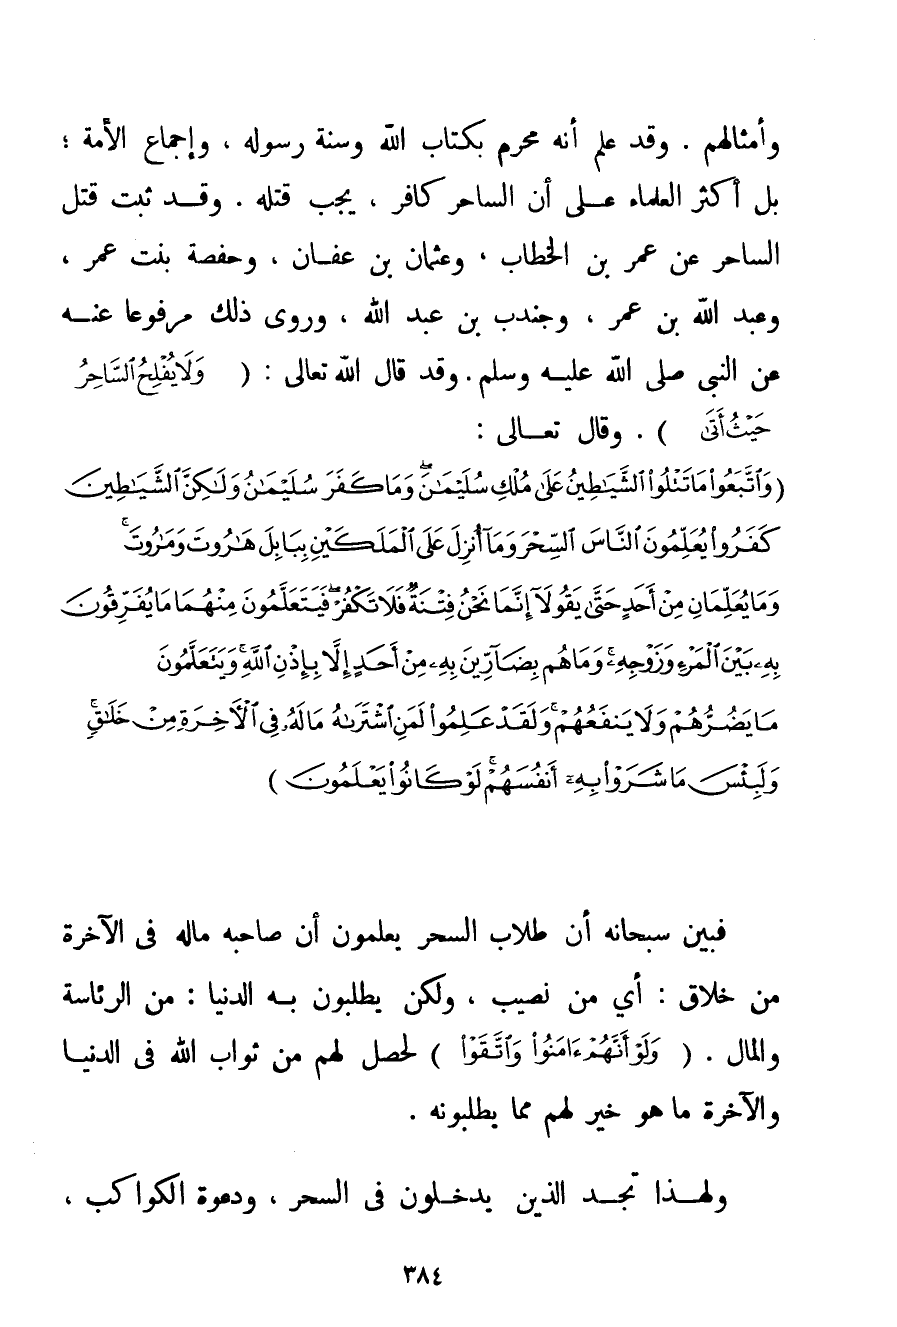 وأمثالهم . وقد علم أنه محرم بكتاب الله وسنة رسوله ، وإجماع الأمة ؛
بل أكثر العلماء عـلى أن الساحر كافر ، يجب قتله . وقـد ثبت قتل
الساحر عن عمر بن الخطاب ، وعثمان بن عفـان ، وحفصة بنت عمر ،
وعبد الله بن عمر ، وجندب بن عبد الله ، وروى ذلك مرفوعا عنـه
عن النبي صلى الله عليـه وسلم . وقد قال الله تعالى : ( وَلَا يُفْلِحُ ٱلسَّاحِرُ
حَيْثُ أَتَىٰ ) . وقال تعـالى :
(وَٱتَّبَعُوا۟ مَا تَتْلُوا۟ ٱلشَّيَـٰطِينُ عَلَىٰ مُلْكِ سُلَيْمَـٰنَ ۖ وَمَا كَفَرَ سُلَيْمَـٰنُ وَلَـٰكِنَّ ٱلشَّيَـٰطِينَ
كَفَرُوا۟ يُعَلِّمُونَ ٱلنَّاسَ ٱلسِّحْرَ وَمَآ أُنزِلَ عَلَى ٱلْمَلَكَيْنِ بِبَابِلَ هَـٰرُوتَ وَمَـٰرُوتَ ۚ
وَمَا يُعَلِّمَانِ مِنْ أَحَدٍ حَتَّىٰ يَقُولَآ إِنَّمَا نَحْنُ فِتْنَةٌ فَلَا تَكْفُرْ ۖ فَيَتَعَلَّمُونَ مِنْهُمَا مَا يُفَرِّقُونَ
بِهِۦ بَيْنَ ٱلْمَرْءِ وَزَوْجِهِۦ ۚ وَمَا هُم بِضَآرِّينَ بِهِۦ مِنْ أَحَدٍ إِلَّا بِإِذْنِ ٱللَّهِ ۚ وَيَتَعَلَّمُونَ
مَا يَضُرُّهُمْ وَلَا يَنفَعُهُمْ ۚ وَلَقَدْ عَلِمُوا۟ لَمَنِ ٱشْتَرَىٰهُ مَا لَهُۥ فِى ٱلْـَٔاخِرَةِ مِنْ خَلَـٰقٍ ۚ
وَلَبِئْسَ مَا شَرَوْا۟ بِهِۦٓ أَنفُسَهُمْ ۚ لَوْ كَانُوا۟ يَعْلَمُونَ )
فبين سبحانه أن طلاب السحر يعلمون أن صاحبه ماله فى الآخرة
من خلاق : أي من نصيب ، ولكن يطلبون بـه الدنيا : من الرئاسة
والمال . ( وَلَوْ أَنَّهُمْ ءَامَنُوا۟ وَٱتَّقَوْا۟ ) لحصل لهم من ثواب الله فى الدنيـا
والآخرة ما هو خير لهم مما يطلبونه .
ولهـذا تجـد الذين يدخـلون فى السحر ، ودعوة الكواكب ،
٣٨٤